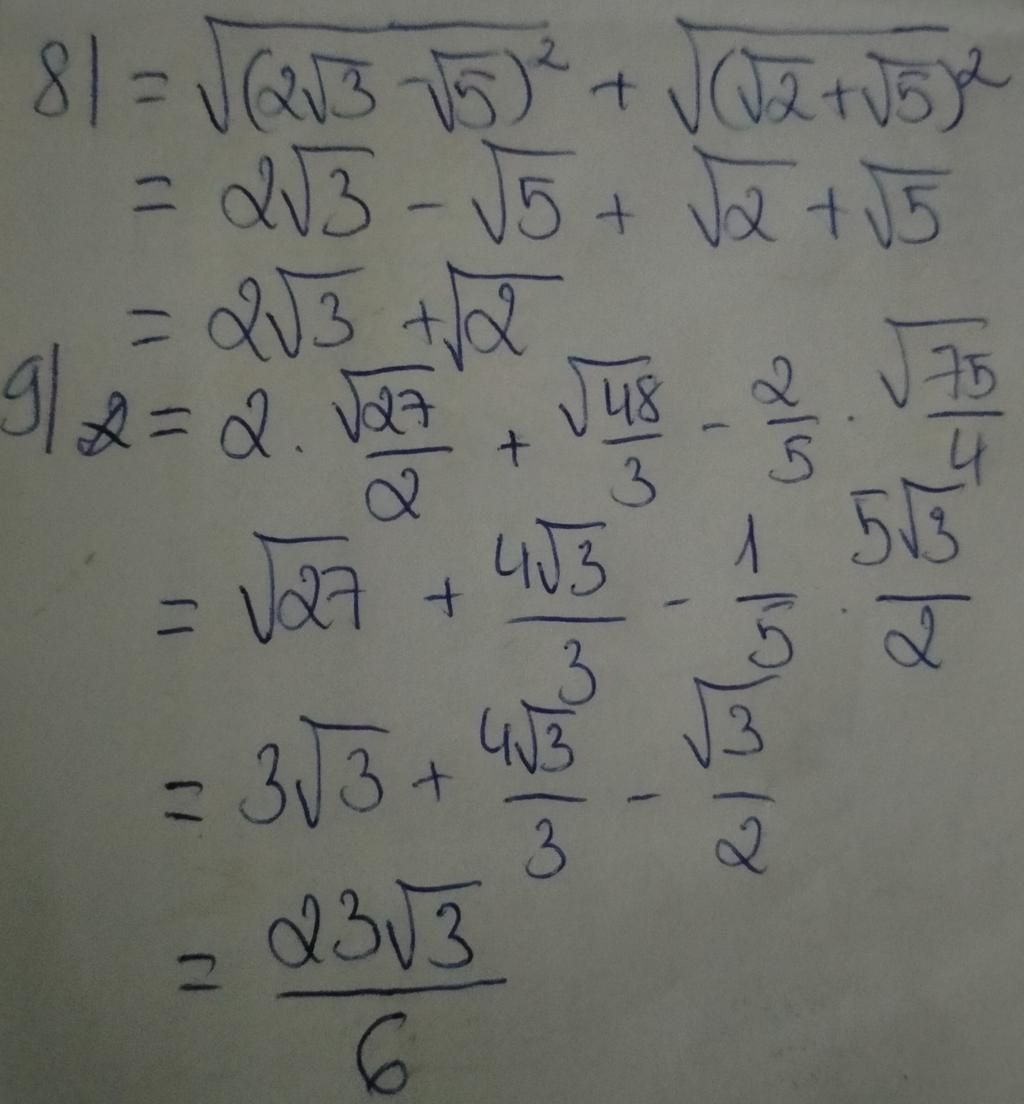 8) = √(2√3 - √5)² + √(√2 + √5)²
= 2√3 - √5 + √2 + √5
= 2√3 + √2
9) = 2 . √27/2 + √48/3 - 2/5 . √75/4
= √27 + 4√3/3 - 1/5 . 5√3/2
= 3√3 + 4√3/3 - √3/2
= 23√3/6